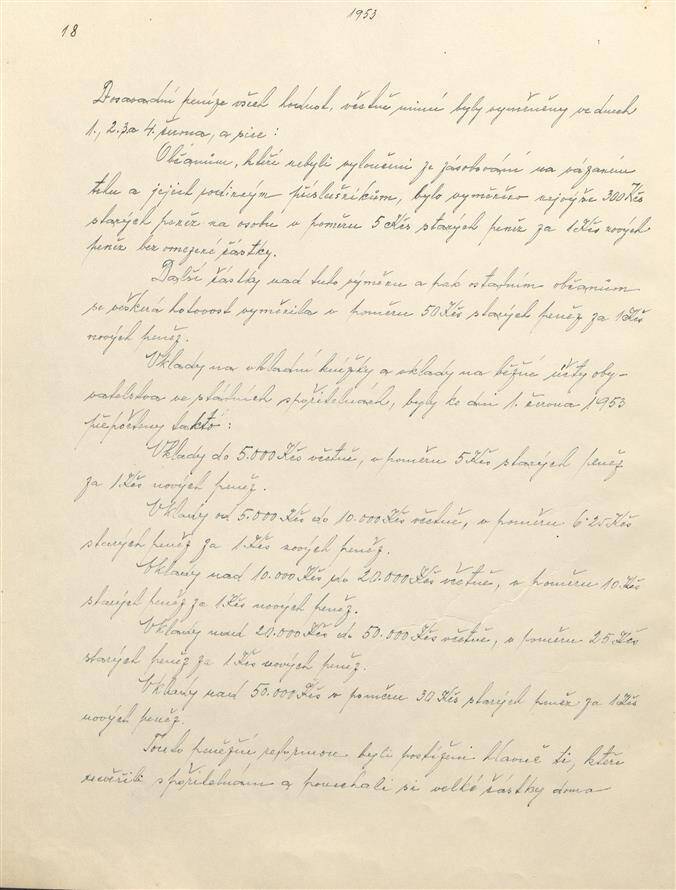 1953
18
Dosavadní peníze všech hodnot, včetně mincí byly vyměněny ve dnech
1., 2. 3. a 4. června, a sice:
Občanům, kteří nebyli vyloučeni ze zásobování na vázaném
trhu a jejich rodinným příslušníkům, bylo vyměněno nejvýše 300 Kčs
starých peněz na osobu v poměru 5 Kčs starých peněz za 1 Kčs nových
peněz bez omezení částky.
Další částky nad tuto výměru a pak ostatním občanům
se veškerá hotovost vyměnila v poměru 50 Kčs starých peněz za 1 Kčs
nových peněz.
Vklady na vkladní knížky a vklady na běžné účty oby-
vatelstva ve státních spořitelnách, byly ke dni 1. června 1953
přepočteny takto:
Vklady do 5.000 Kčs včetně, v poměru 5 Kčs starých peněz
za 1 Kčs nových peněz.
Vklady od 5.000 Kčs do 10.000 Kčs včetně, v poměru 6.25 Kčs
starých peněz za 1 Kčs nových peněz.
Vklady nad 10.000 Kčs do 20.000 Kčs včetně, v poměru 10 Kčs
starých peněz za 1 Kčs nových peněz.
Vklady nad 20.000 Kčs do 50.000 Kčs včetně, v poměru 25 Kčs
starých peněz za 1 Kčs nových peněz.
Vklady nad 50.000 Kčs v poměru 30 Kčs starých peněz za 1 Kčs
nových peněz.
Touto peněžní reformou byli postiženi hlavně ti, kteří
nevěřili spořitelnám a ponechali si velké částky doma